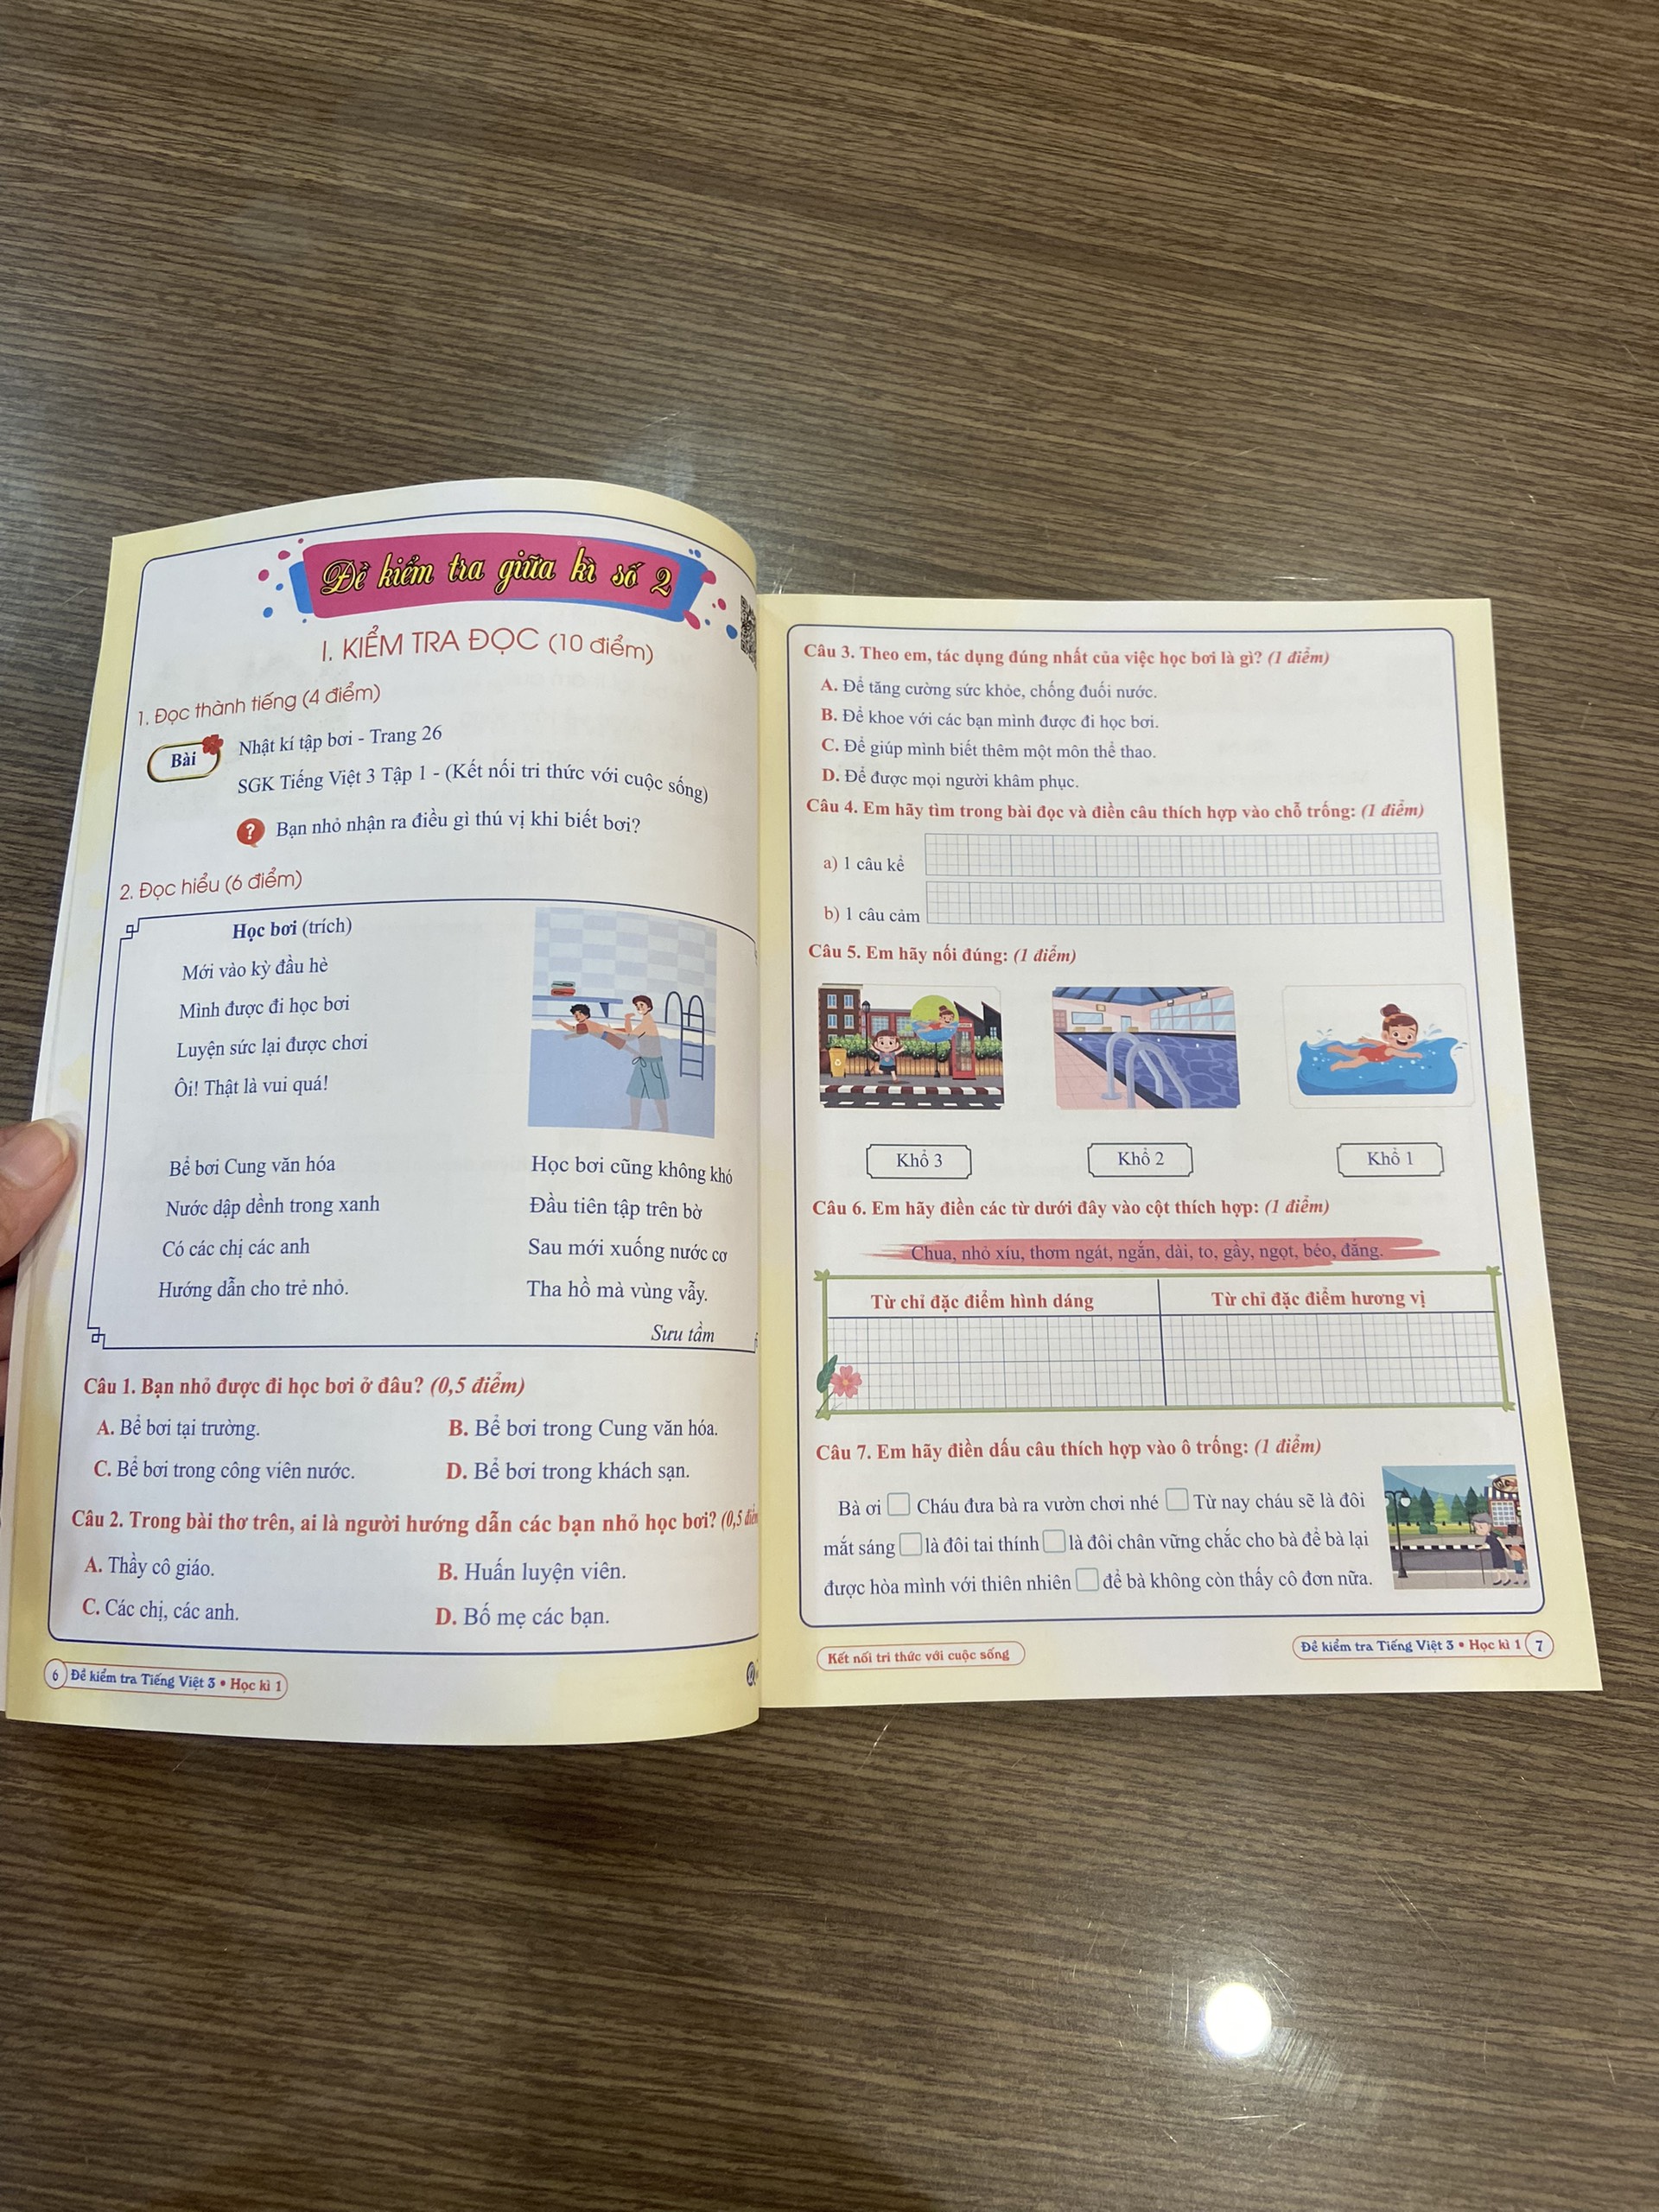 Đề kiểm tra giữa kì số 2
I. KIỂM TRA ĐỌC (10 điểm)
1. Đọc thành tiếng (4 điểm)
Bài
Nhật kí tập bơi - Trang 26
SGK Tiếng Việt 3 Tập 1 - (Kết nối tri thức với cuộc sống)
? Bạn nhỏ nhận ra điều gì thú vị khi biết bơi?
2. Đọc hiểu (6 điểm)
Học bơi (trích)
Mới vào kỳ đầu hè
Mình được đi học bơi
Luyện sức lại được chơi
Ôi! Thật là vui quá!
Bể bơi Cung văn hóa
Nước dập dềnh trong xanh
Có các chị các anh
Hướng dẫn cho trẻ nhỏ.
Học bơi cũng không khó
Đầu tiên tập trên bờ
Sau mới xuống nước cơ
Tha hồ mà vùng vẫy.
Sưu tầm
Câu 1. Bạn nhỏ được đi học bơi ở đâu? (0,5 điểm)
A. Bể bơi tại trường. B. Bể bơi trong Cung văn hóa.
C. Bể bơi trong công viên nước. D. Bể bơi trong khách sạn.
Câu 2. Trong bài thơ trên, ai là người hướng dẫn các bạn nhỏ học bơi? (0,5
A. Thầy cô giáo. B. Huấn luyện viên.
C. Các chị, các anh. D. Bố mẹ các bạn.
6 Đề kiểm tra Tiếng Việt 3 • Học kì 1
Câu 3. Theo em, tác dụng đúng nhất của việc học bơi là gì? (1 điểm)
A. Để tăng cường sức khỏe, chống đuối nước.
B. Để khoe với các bạn mình được đi học bơi.
C. Để giúp mình biết thêm một môn thể thao.
D. Để được mọi người khâm phục.
Câu 4. Em hãy tìm trong bài đọc và điền câu thích hợp vào chỗ trống: (1 điểm)
a) 1 câu kể
b) 1 câu cảm
Câu 5. Em hãy nối đúng: (1 điểm)
Khổ 3 Khổ 2 Khổ 1
Câu 6. Em hãy điền các từ dưới đây vào cột thích hợp: (1 điểm)
Chua, nhỏ xíu, thơm ngát, ngắn, dài, to, gầy, ngọt, béo, đắng.
Từ chỉ đặc điểm hình dáng Từ chỉ đặc điểm hương vị
Câu 7. Em hãy điền dấu câu thích hợp vào ô trống: (1 điểm)
Bà ơi □ Cháu đưa bà ra vườn chơi nhé □ Từ nay cháu sẽ là đôi
mắt sáng □ là đôi tai thính □ là đôi chân vững chắc cho bà để bà lại
được hòa mình với thiên nhiên □ để bà không còn thấy cô đơn nữa.
Kết nối tri thức với cuộc sống
Đề kiểm tra Tiếng Việt 3 • Học kì 1 7